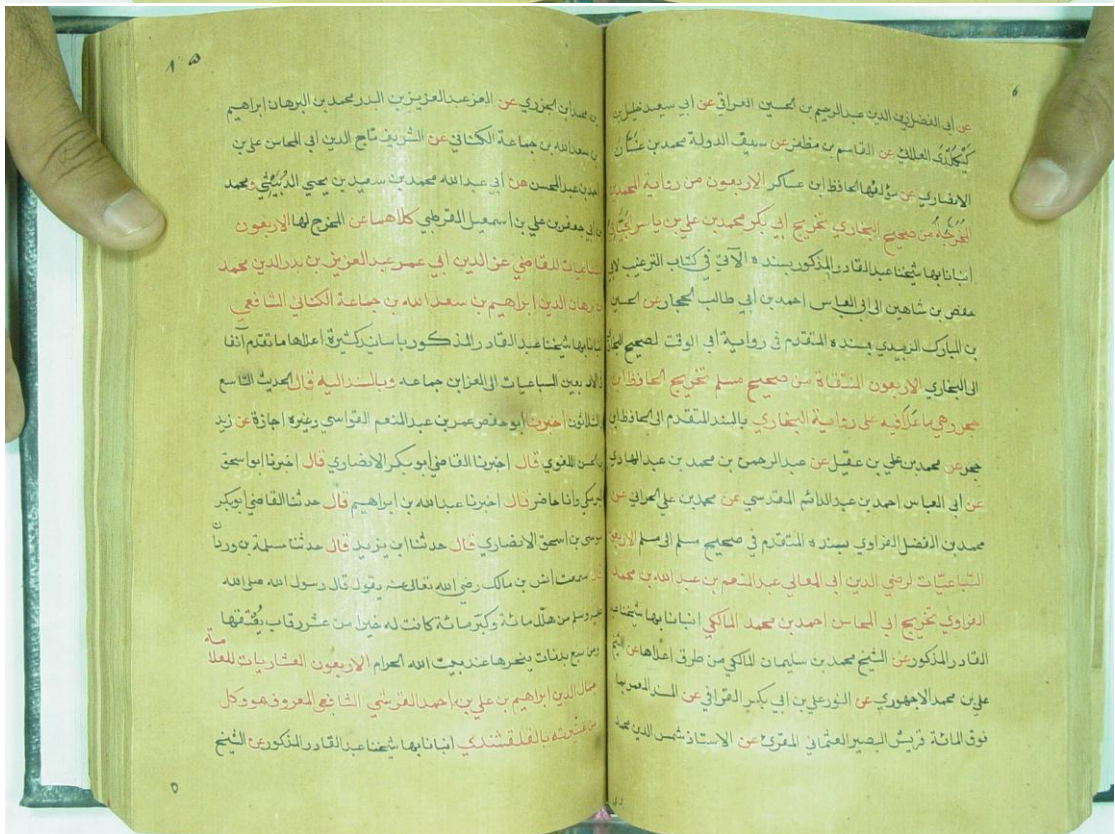 عن أبي الفضل زين الدين عبد الرحيم بن الحسين العراقي عن أبي سعيد خليل بن
كيكلدي العلائي عن القاسم بن مظفر عن سيف الدولة محمد بن غسان
الانصاري عن مؤلفها الحافظ ابن عساكر الاربعون من رواية المحمدين
المخرجة من صحيح البخاري تخريج أبي بكر محمد بن علي بن ياسر
انبانا بها شيخنا عبد القادر المذكور بسنده الآتي في كتاب الترغيب لابي
حفص بن شاهين الى ابي العباس احمد بن أبي طالب الحجار عن الحسين
بن المبارك الزبيدي بسنده المتقدم في رواية أبي الوقت لصحيح
الى البخاري الاربعون المنتقاة من صحيح مسلم تخريج الحافظ ابن
حجر وهي ما علا فيه على رواية البخاري بالسند المتقدم الى الحافظ ابن
حجر عن محمد بن علي بن عقيل عن عبد الرحمن بن محمد بن عبد الهادي
عن أبي العباس احمد بن عبد الدائم المقدسي عن محمد بن علي الحراني عن
محمد بن الفضل الفراوي بسنده المتقدم في صحيح مسلم الى مسلم الاربعون
السباعيات لرضي الدين ابي المعالي عبد المنعم بن عبد الله بن محمد
الفراوي تخريج ابي المحاسن احمد بن محمد المالكي انبانا بها شيخنا عبد
القادر المذكور عن الشيخ محمد بن سليمان المالكي من طرق أعلاها عن الشيخ
علي بن محمد الاجهوري عن النور علي بن ابي بكر القرافي عن السند المعمر بها
فوق المائة قريش البصير العثماني المقرئ عن الاستاذ شمس الدين محمد
٨٥
بن محمد ابن الجزري عن العز عبد العزيز بن البدر محمد بن البرهان ابراهيم
بن سعد الله بن جماعة الكناني عن الشريف تاج الدين ابي المحاسن علي بن
احمد بن عبد المحسن عن أبي عبد الله محمد بن سعيد بن يحيى الدبيثي ومحمد
بن ابي جعفر بن علي بن اسمعيل القرطبي كلاهما عن المخرج لها الاربعون
التساعيات للقاضي عز الدين ابي عمر عبد العزيز بن بدر الدين محمد
بن برهان الدين ابراهيم بن سعد الله بن جماعة الكناني الشافعي
انبانا بها شيخنا عبد القادر المذكور باسانيد كثيرة أعلاها ما تقدم آنفا
في الاربعين السباعيات الى العز ابن جماعه وبالسند اليه قال الحديث التاسع
والثلاثون اخبرنا أبو حفص عمر بن عبد المنعم القواسي وغيره اجازة عن زيد
بن الحسن اللغوي قال اخبرنا القاضي أبو بكر الانصاري قال اخبرنا ابو اسحق
البرمكي وانا حاضر قال اخبرنا عبد الله بن ابراهيم قال حدثنا القاضي أبو بكر
موسى بن اسحق الانصاري قال حدثنا ابن يزيد قال حدثنا سلمة بن وردان
قال سمعت أنس بن مالك رضي الله تعالى عنه يقول قال رسول الله صلى الله
عليه وسلم من هلل مائة وكبر مائة كانت له خيرا من عشر رقاب يعتقها
ومن سبع بدنات ينحرها عند بيت الله الحرام الاربعون العشاريات للعلامة
جمال الدين ابراهيم بن علي بن احمد القرشي الشافعي المعروف هو وكل
من عشيرته بالقلقشندي انبانا بها شيخنا عبد القادر المذكور عن الشيخ